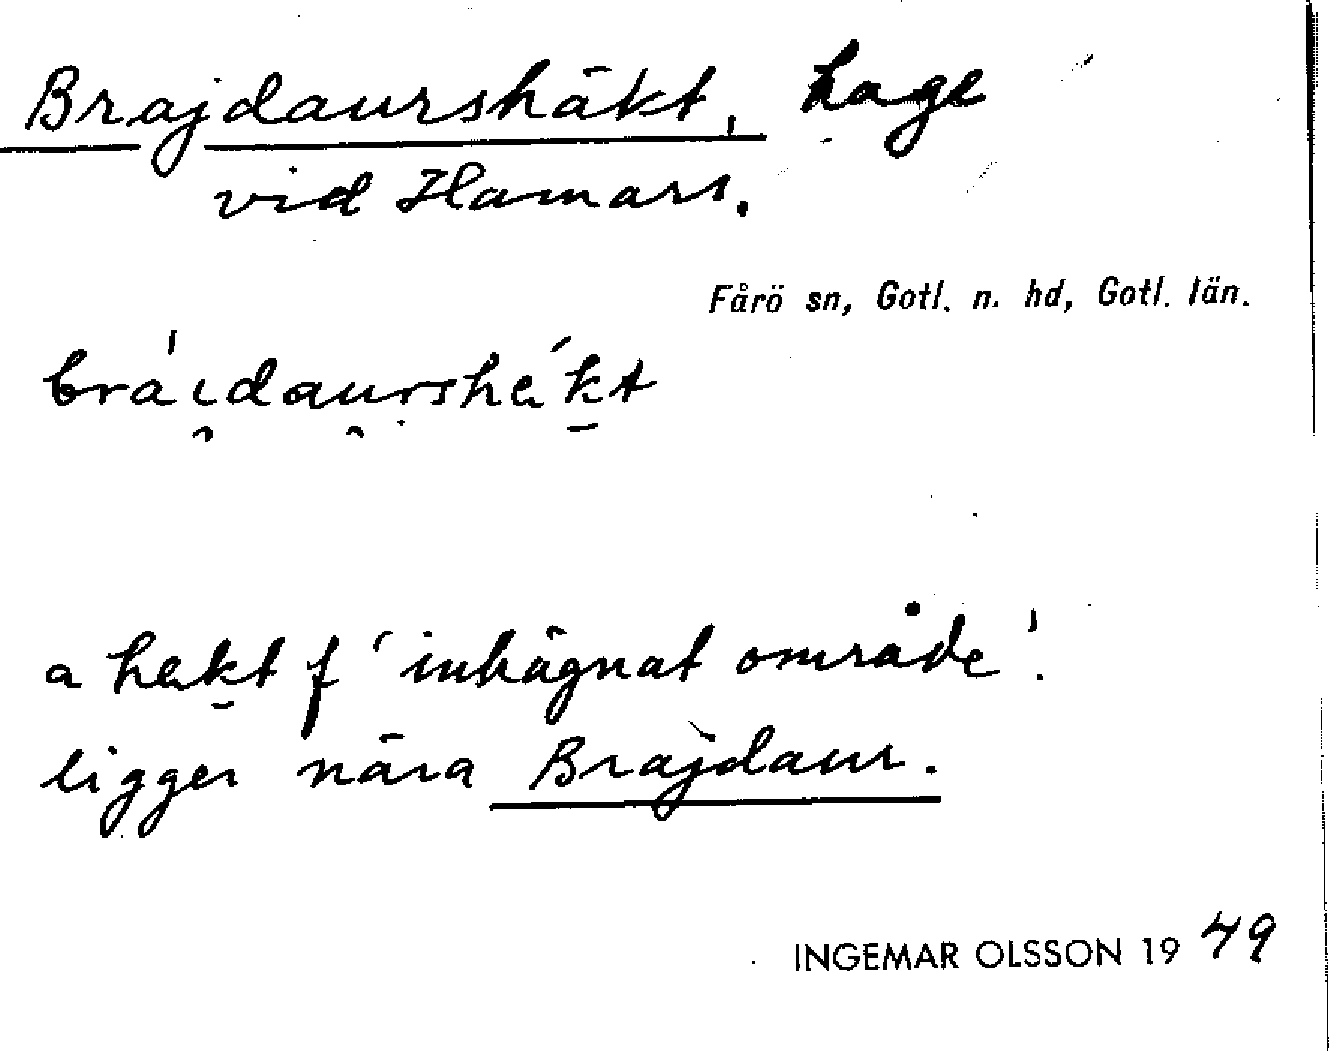 Brajdaurshäkt, hage
vid Hamars.
Fårö sn, Gotl. n. hd, Gotl. län.
brá'i̯dau̯rshák̠t
a hak̠t f 'inhägnat område'.
ligger nära Brajdaur.
INGEMAR OLSSON 1949